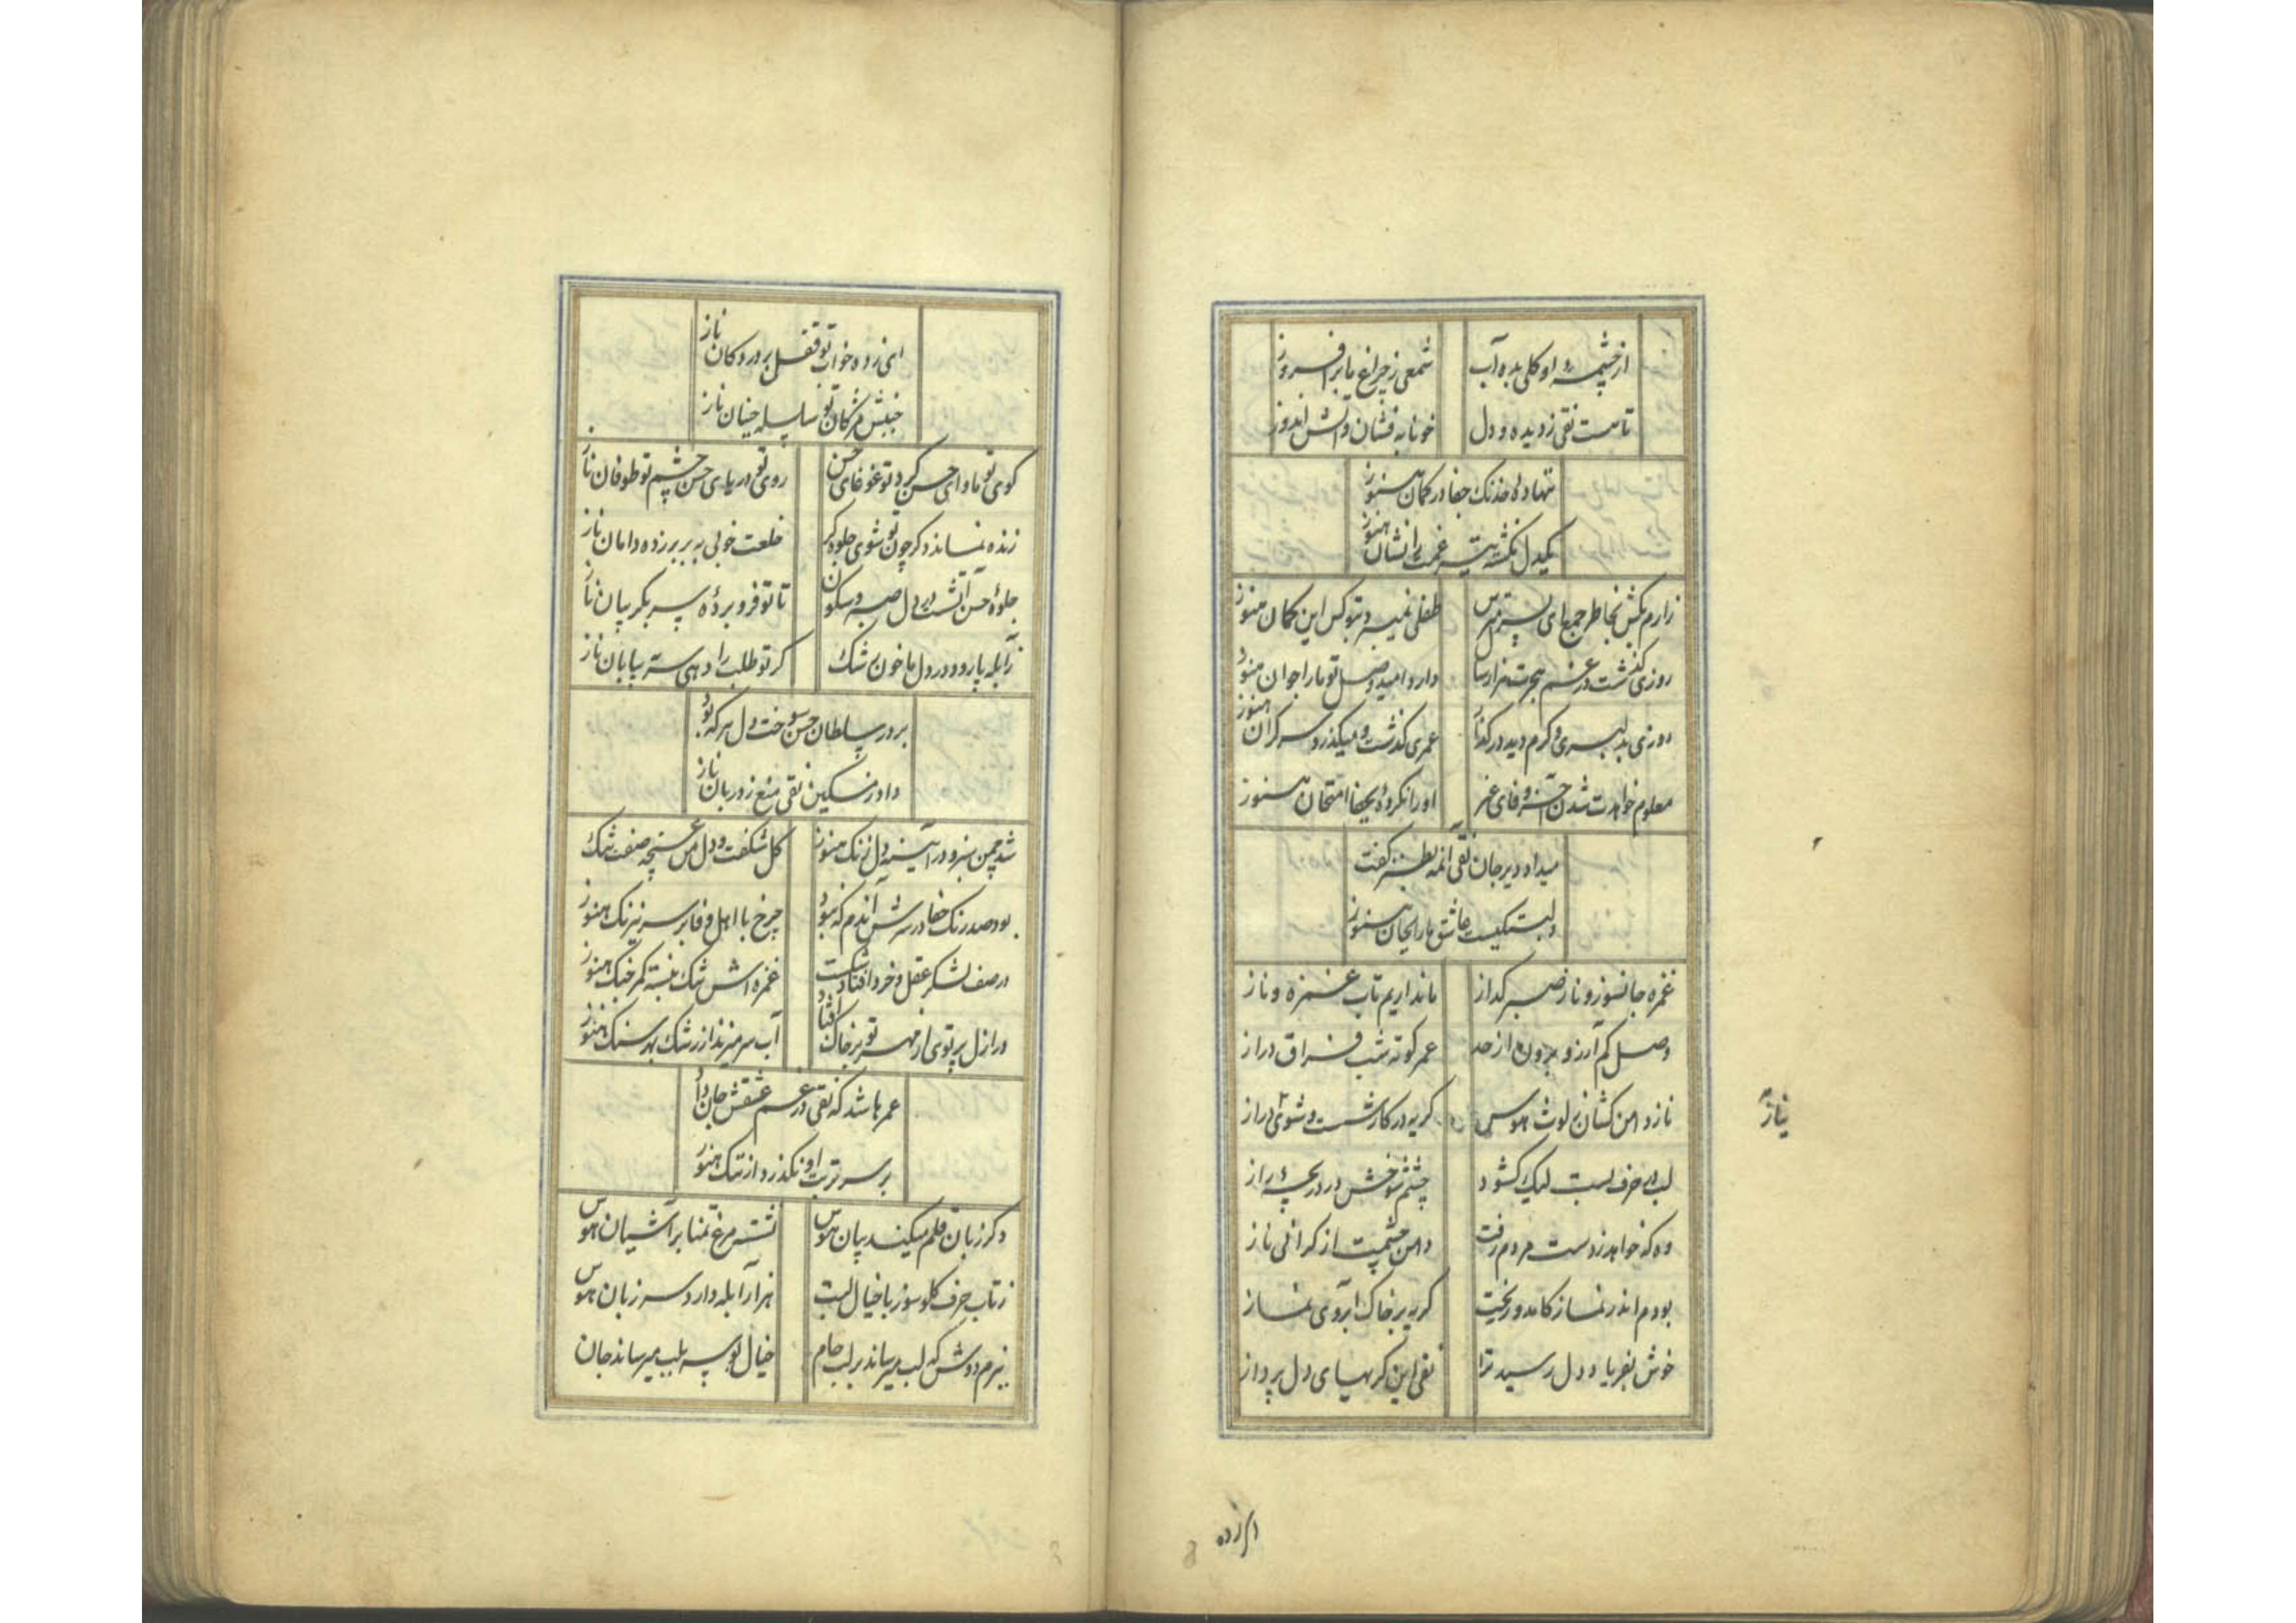 از چشمه او گلی بده آب
شمعی ز چراغ ما برافروز
تا هست نقی ز دیده و دل
خونابه فشان و آتش اندوز
تنها نه خدنک جفا در کمان هنوز
یکدل نکشته تیر غمت را نشان هنوز
زارم بکش بخاطر جمع ای پسر مترس
طفلی نمیبرد بتو کس این کمان هنوز
روزی گذشت در غم هجرت هزار سال
دارد امید وصل تو ما را جوان هنوز
روزی بدلبری و کرم دید در گذار
عمری گذشت و میگذرد سرگران هنوز
معلوم خواهدت شدن آخر وفای غیر
او را نکرده بجفا امتحان هنوز
میداد دیر جان نقی آنمه بطنز گفت
دلبستگیست عاشق ما را بجان هنوز
غمزه جانسوز و ناز صبر گداز
ما نداریم تاب غمزه و ناز
وصل کم آرزو برون از حد
عمر کوته شب فراق دراز
ناز دامن کشان ز لوث هوس
گریه در کار شست و شوی دراز
نیاز
لب ز حرف بست لیک گشود
چشم شوخش در دریچه راز
وه که خواهد ز دست مردم رفت
دامن چشمت از گرانی ناز
بودم اندر نماز کامد و ریخت
گریه بر خاک آبروی نماز
خوش بفریاد دل رسید ترا
نقی این گریهای دل پرداز
ای زده
ای زده خواب تو قفل بر در دکان ناز
جنبش مژگان تو سلسله جنبان ناز
کوی تو ماوای حسن گرد تو غوغای حسن
روی تو دریای حسن چشم تو طوفان ناز
زنده نماند دگر چون تو شوی جلوه گر
خلعت خوبی به بر بر زده دامان ناز
جلوهٔ حسن آتشست در دل صبر و سکون
تا تو فرو بردهٔ سر بگریبان ناز
ز آبله پا رود در دل ما خون رشک
گر تو طلب را دهی سر به بیابان ناز
بر در سلطان حسن سوخت دل هر که بود
داد ز مسکین نقی منع ز دربان ناز
شد چمن سبز و در آیینه دل زنک هنوز
گل شکفت و دل من غنچه صفت تنک
بود صد رنک جفا در سرش آندم که نبود
چرخ با اهل وفا بر سر نیرنک هنوز
در صف لشکر عقل و خرد افتاد شکست
غمزه اش تنک نبسته کمر جنک هنوز
در ازل پرتوی از مهر تو بر خاک افتاد
آب سر میزند از رشک بهر سنک هنوز
عمرها شد که نقی در غم عشقش جان داد
بر سر تربت او نگذرد از ننک هنوز
دگر زبان قلم میکند بیان هوس
نشست مرغ تمنا بر آشیان هوس
ز تاب حرف گلو سوز با خیال لبت
هزار آبله دارد سر زبان هوس
ببزم دوش که لب میرساند بر لب جام
خیال بوسه بلب میرساند جان